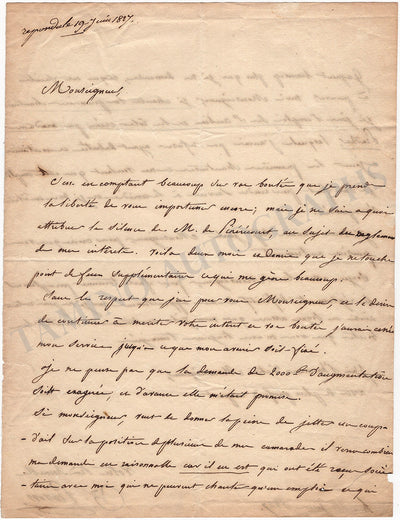 repondu le 19 Juin 1827.
Monseigneur,
C'est en comptant beaucoup sur vos bontés que je prend
la liberté de vous importuner encore; mais je ne sais a quoi
attribuer le silence de M. de au sujet du
de mes interets. voila deux mois et demie que je ne touche
point de feux supplementaires ce qui me gène beaucoup.
Sans le respect que j'ai pour vous Monseigneur, et le desir
de continuer à meriter votre interet et vos bontés j'aurais cessé
mon service jusqu'a ce que mon avenir soit fixé.
Je ne pense pas que la demande de 2000 f. d'augmentation
soit exagerée, et d'avance elle m'était promise.
Si monseigneur, veut se donner la peine de jetter un coup-
-d'œil sur la position de plusieurs de mes camarades il verra combien
ma demande est raisonnable car il en est qui ont été reçus socié
-taires avec moi qui ne peuvent chanter qu'un emploi et qui
TAMINO AUTOGRAPHS